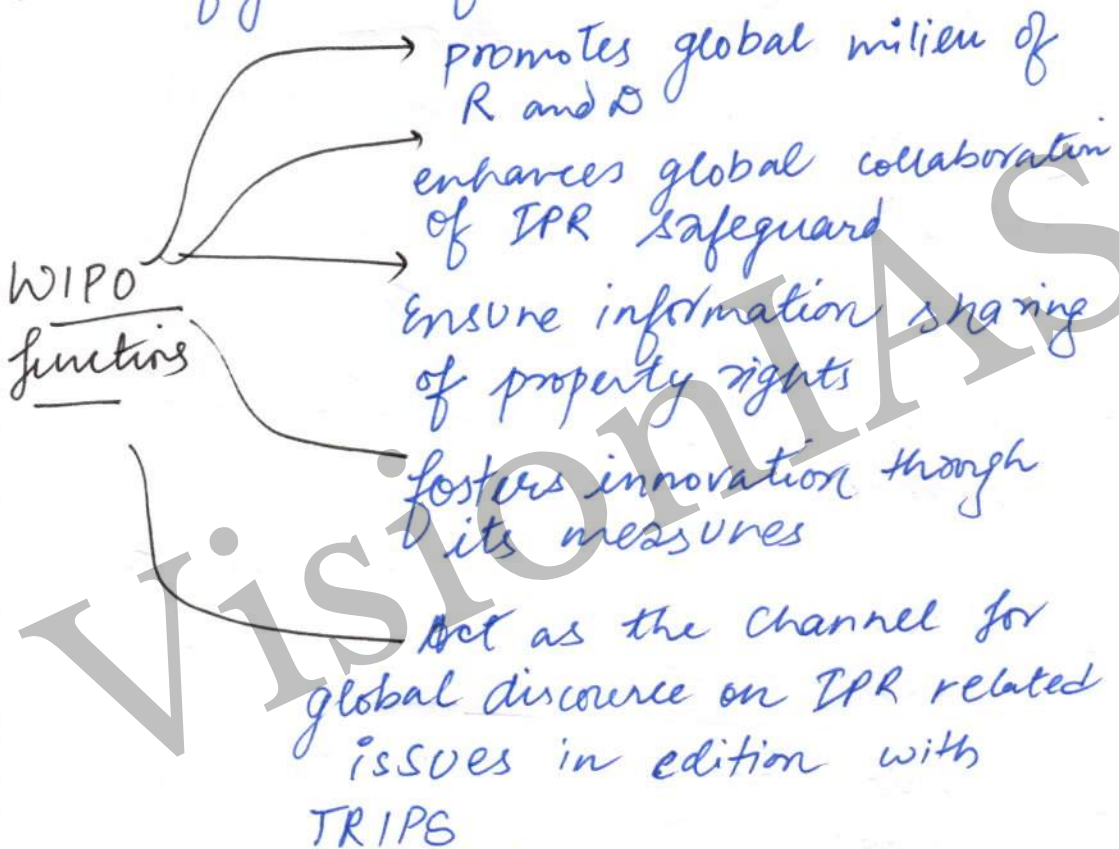 promotes global milieu of
R and D
enhances global collaboration
of IPR safeguard
WIPO
functins
Ensure information sharing
of property rights
fosters innovation through
its measures
Act as the channel for
global discource on IPR related
issues in edition with
TRIPS
VisionIAS